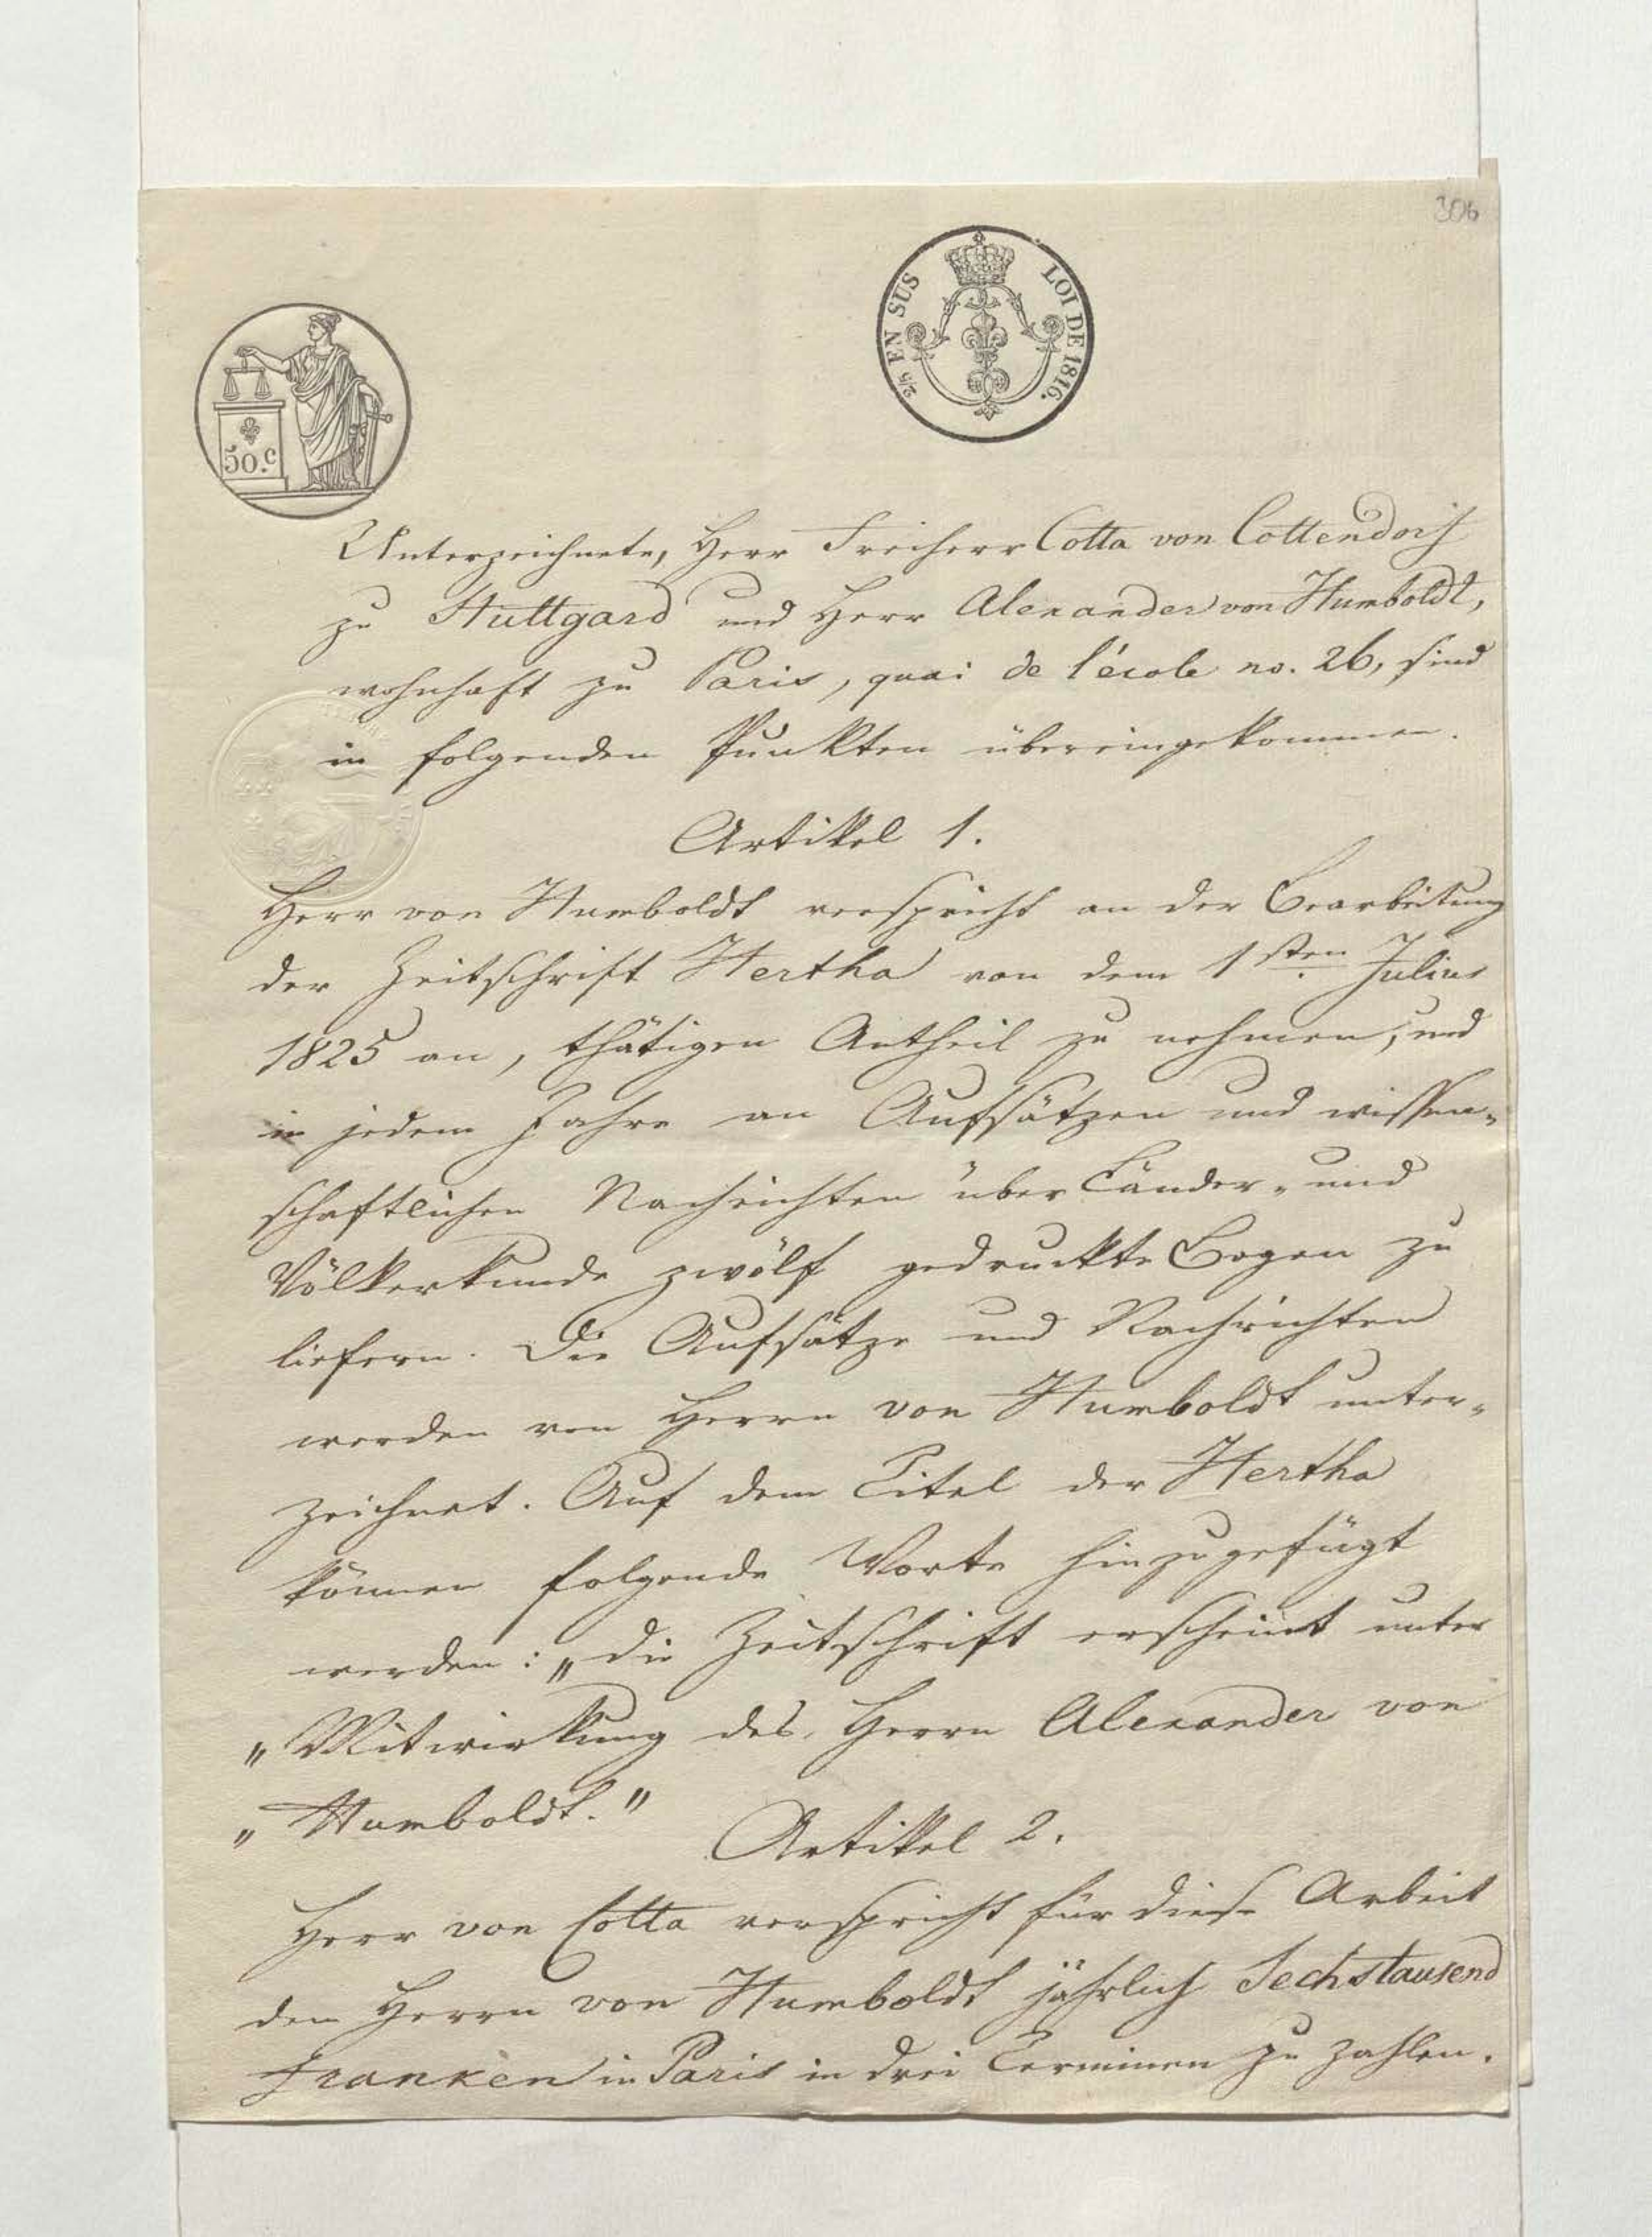 306
2/5 EN SUS LOI DE 1816.
50.c
Unterzeichnete, Herr Freiherr Cotta von Cottendorf
zu Stuttgard und Herr Alexander von Humboldt,
wohnhaft zu Paris, quai de l'école no. 26, sind
in folgenden Punkten übereingekommen.
Artikel 1.
Herr von Humboldt verspricht an der Bearbeitung
der Zeitschrift Hertha von dem 1sten Julius
1825 an, thätigen Antheil zu nehmen, und
in jedem Jahre an Aufsätzen und wissen-
schaftlichen Nachrichten über Länder- und
Völkerkunde zwölf gedruckte Bogen zu
liefern. Die Aufsätze und Nachrichten
werden von Herrn von Humboldt unter-
zeichnet. Auf dem Titel der Hertha
können folgende Worte hinzugefügt
werden: „die Zeitschrift erscheint unter
„Mitwirkung des Herrn Alexander von
„Humboldt."
Artikel 2.
Herr von Cotta verspricht für diese Arbeit
den Herrn von Humboldt jährlich Sechstausend
Franken in Paris in drei Terminen zu zahlen.